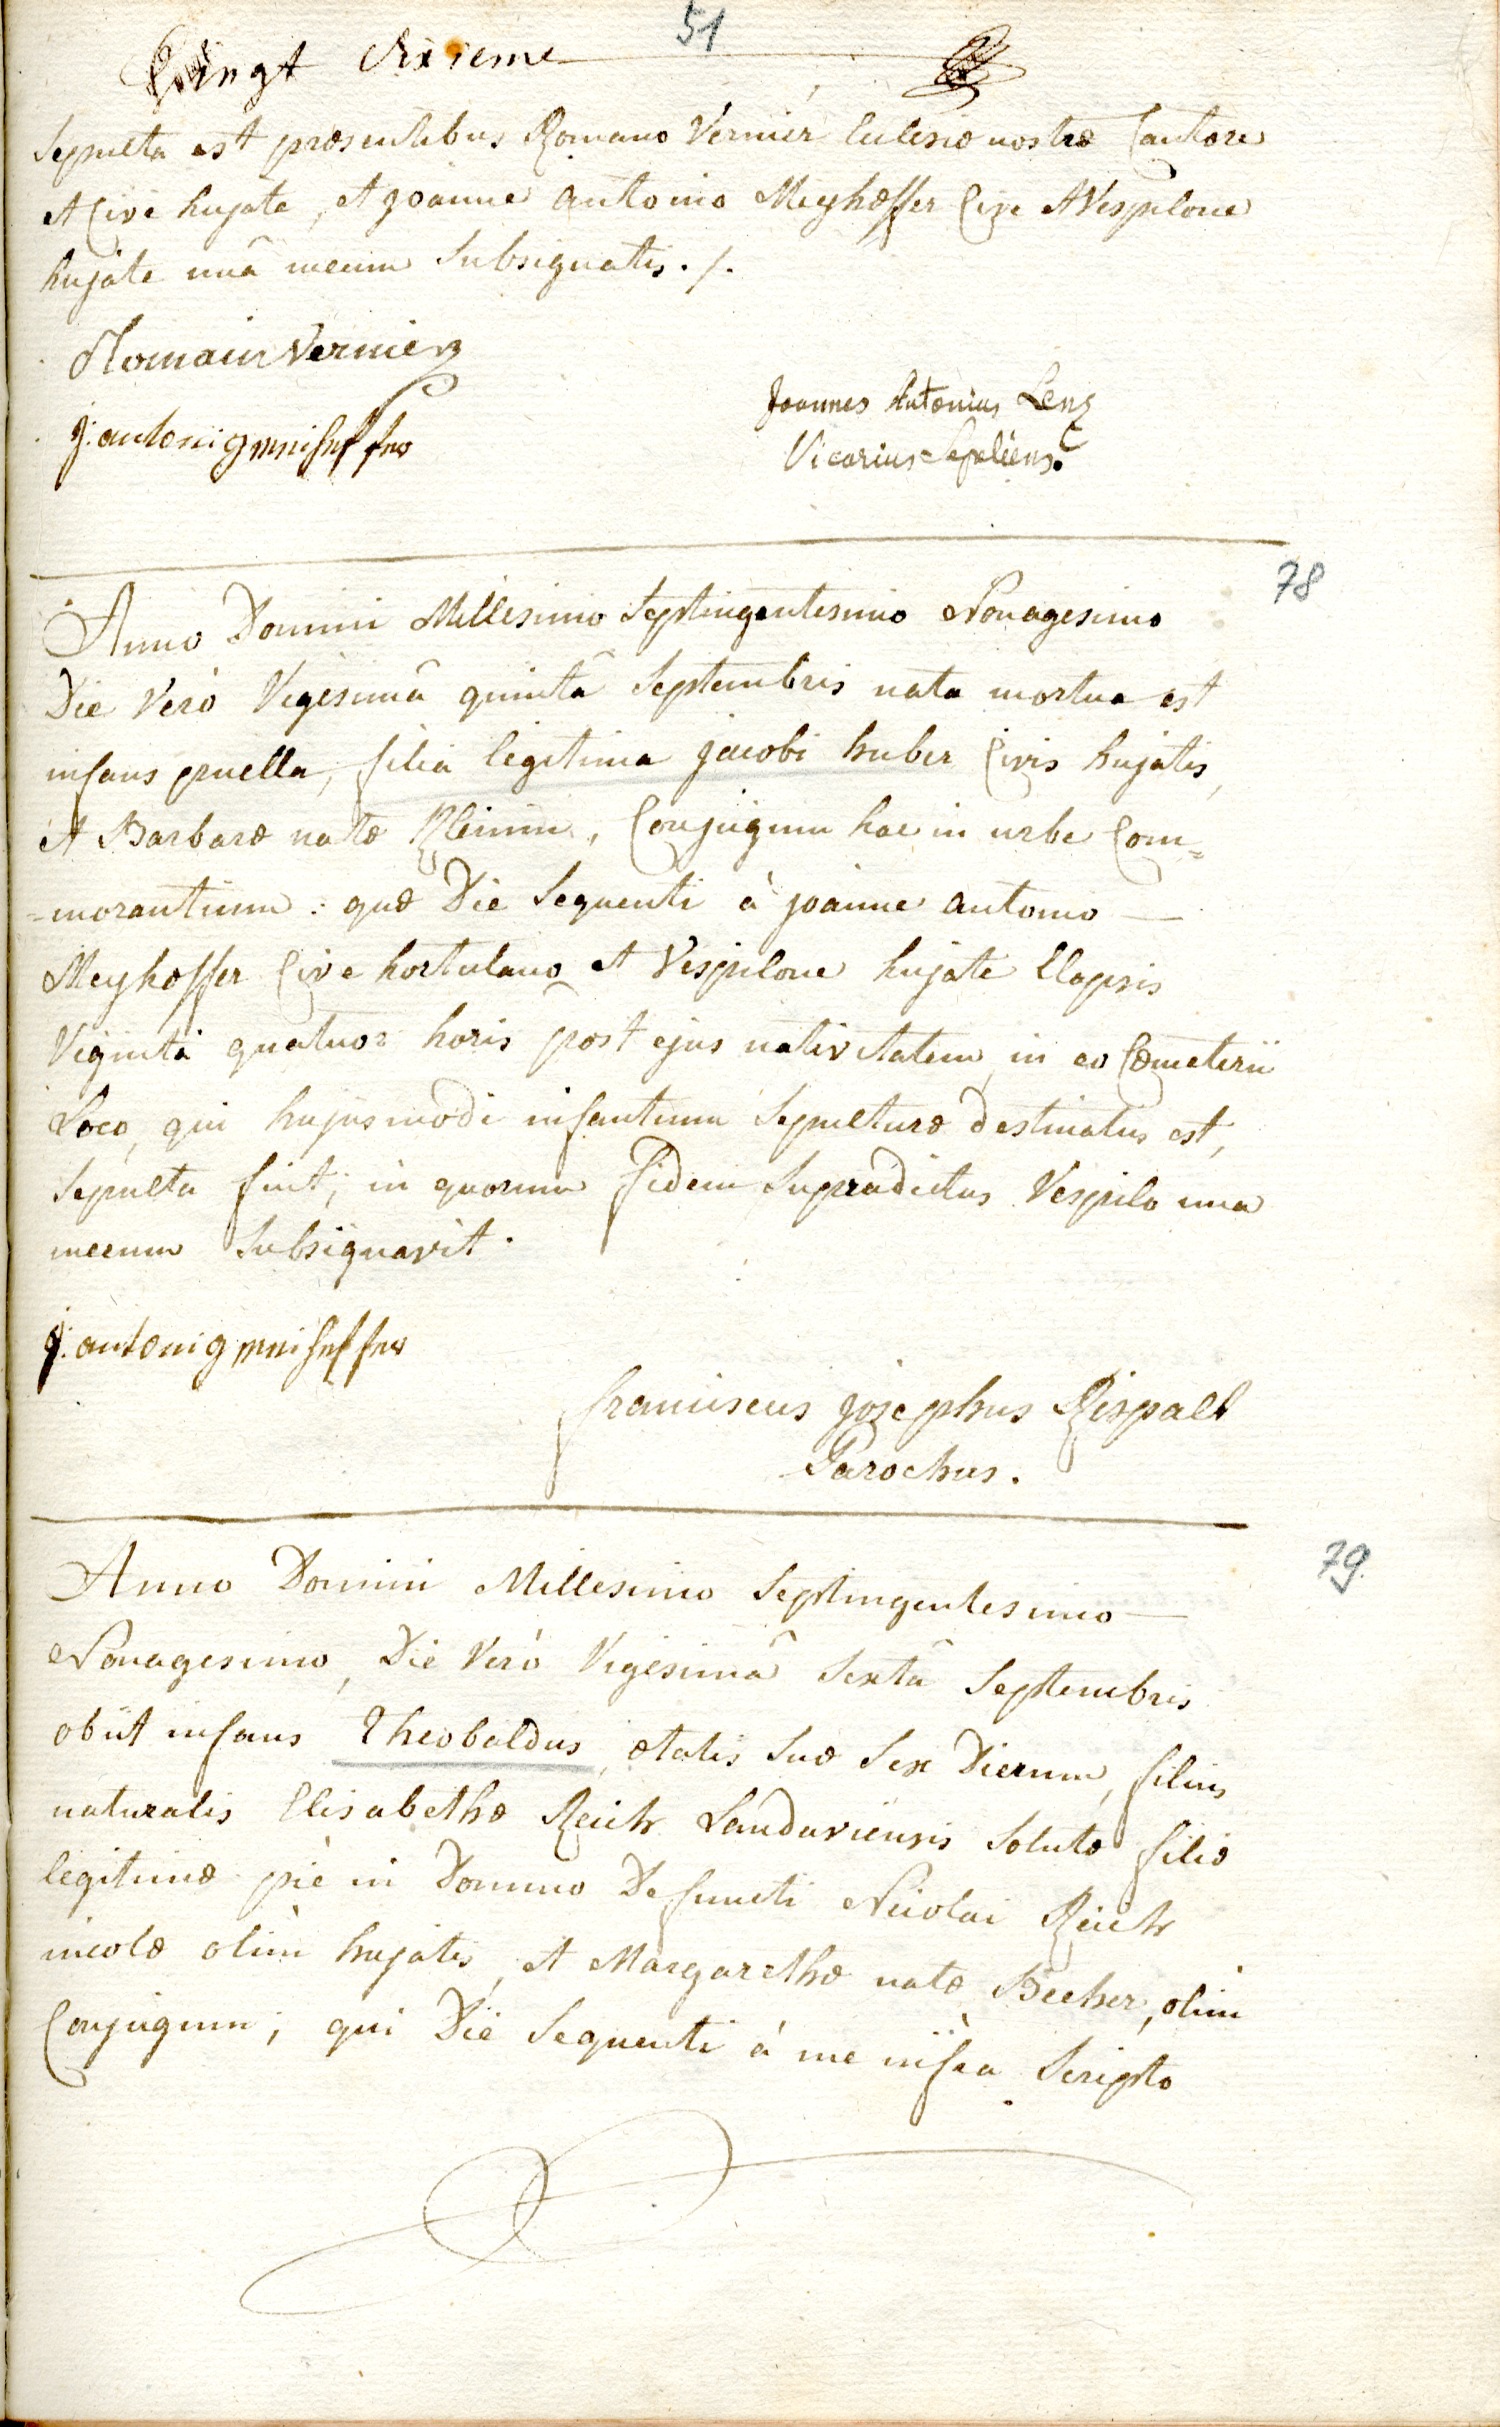 51
Vingt Sixieme
Sepulta est præsentibus Romano Vernier Eclesiæ nostræ Cantore
et Cive hujate, et Joanne Antonio Meyhoffer Cive et Vespilone
hujate unâ mecum Subsignatis ./.
Romain Vernier
Joannes Antonius Lenz
Vicarius Sepeliens.
78
Anno Domini Millesimo Septingentesimo Nonagesimo
Die Verò Vigesimâ quintâ Septembris nata mortua est
infans puella, filia legitima Jacobi huber Civis hujatis,
et Barbaræ natæ Klemm, Conjugum hac in urbe Com=
=morantium : quæ Die Sequenti à Joanne Antonio —
Meyhoffer Cive hortulano et Vespilone hujate Elapsis
Viginti quatuor horis post ejus nativitatem, in eo Cœmeterii
Loco, qui hujusmodi infantum Sepulturæ destinatus est,
Sepulta fuit; in quorum fidem Supradictus Vespilo una
mecum Subsignavit.
franciscus Josephus Rispalt
Parochus.
79.
Anno Domini Millesimo Septingentesimo —
Nonagesimo, Die Verò Vigesimâ Sextâ Septembris
obiit infans Theobaldus, ætatis Suæ Sex Dierum, filius
naturalis Elisabethæ Reich Landaviensis Solutæ filiæ
legitimæ piè in Domino Defuncti Nicolai Reich
incolæ olim hujatis, et Margarethæ natæ Becher, olim
Conjugum; qui Die Sequenti à me infra Scripto